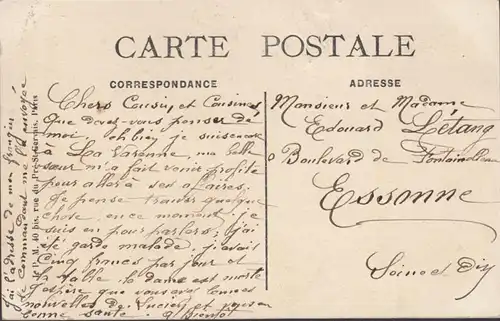 CARTE POSTALE
CORRESPONDANCE
ADRESSE
Chers Cousin et Cousines
Que devez-vous penser de
moi, eh bien je suis encore
à La Varenne, ma belle
sœur m'a fait venir profite
pour aller à ses affaires.
Je pense trouver quelque
chose, en ce moment, je
suis en pour parlers; j'ai
été garde malade, j'avais
Cinq francs par jour et
la table. la dame est morte
J'espère que vous avez bonnes
nouvelles de Lucien et vous en
bonne santé. à Bientôt
J'ai l'adresse de mon français
le Commandant me l'a envoyée
M. 40 bis, rue du Pré-St-Gervais, Paris
Monsieur et Madame
Edouard Létang
Boulevard de Fontainebleau
Essonne
Seine et Oise